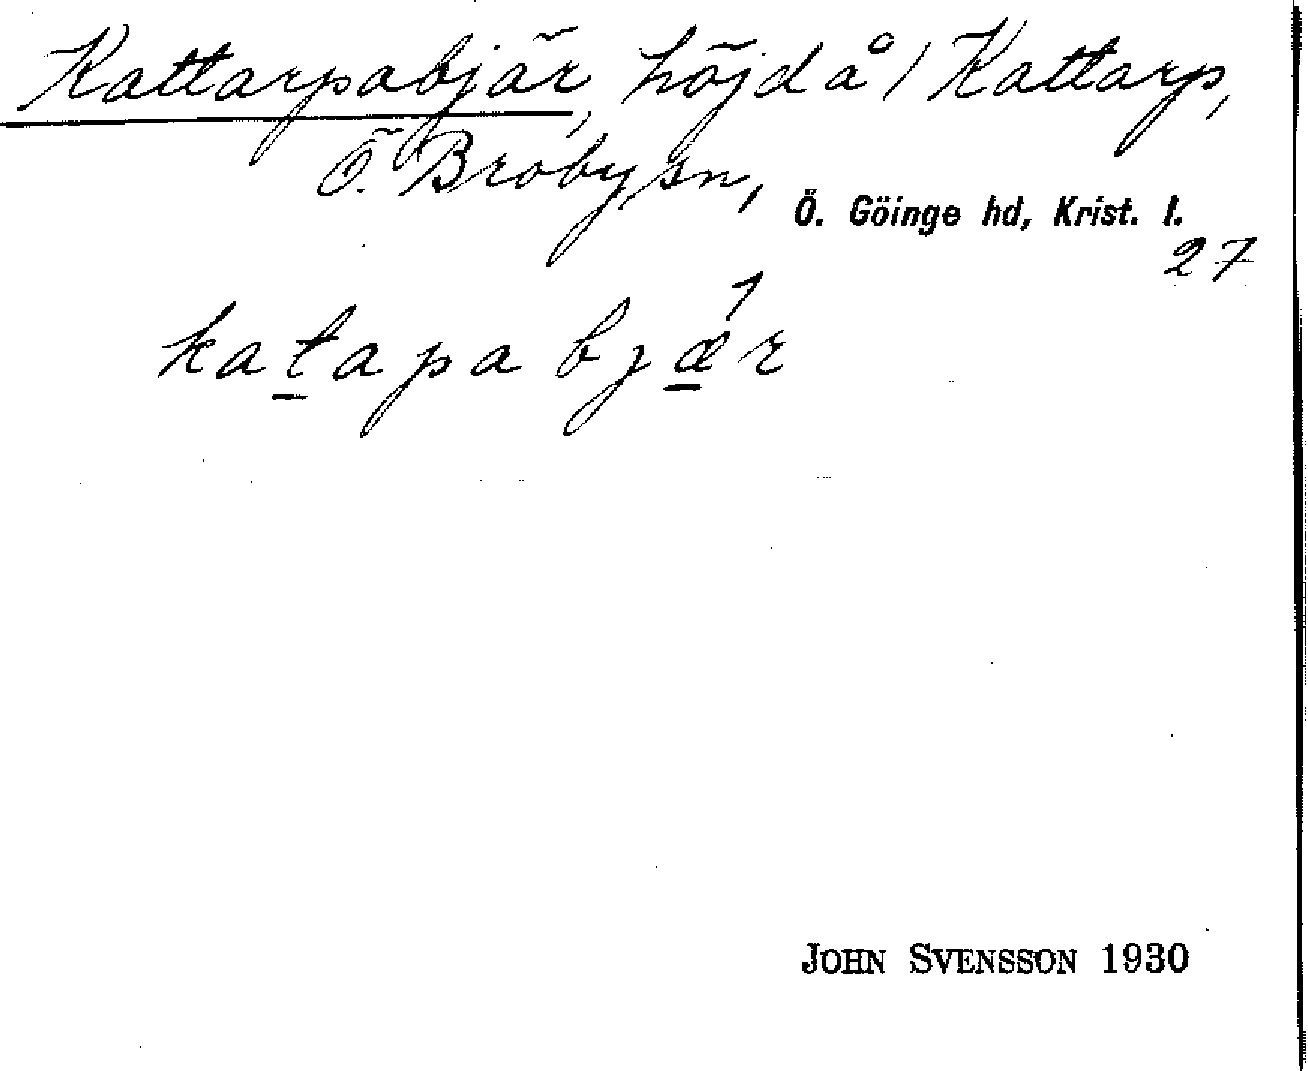 Kattarpabjär, höjd å / Kattarp,
Ö. Broby sn, Ö. Göinge hd, Krist. l.
27
kat̲apabjæ̲´r
JOHN SVENSSON 1930